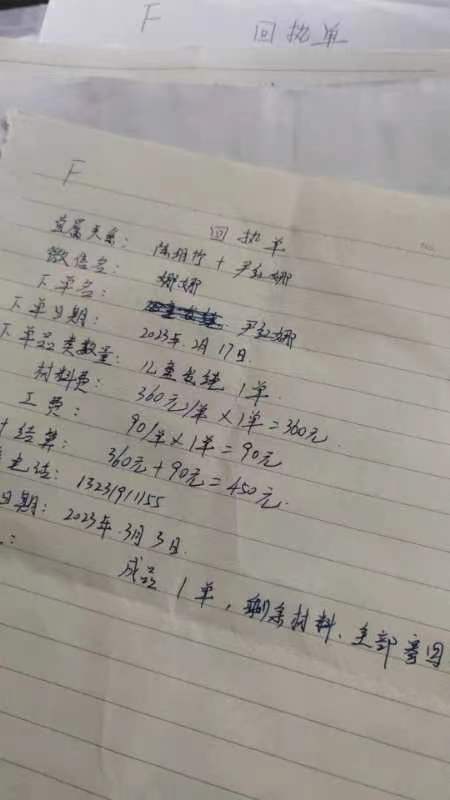 F 回执单
F
回执单
直属关系: 陈明竹 + 尹红娜
微信名: 娜娜
下单名: 尹红娜
下单日期: 2023年.2月17日
下单品类数量: 儿童发绳 1单.
材料费: 360元/单 × 1单 = 360元.
工费: 90/单 × 1单 = 90元
结算: 360元 + 90元 = 450元.
电话: 13231911155
日期: 2023年.3月3日.
: 成品 1单, 剩余材料、全部寄回